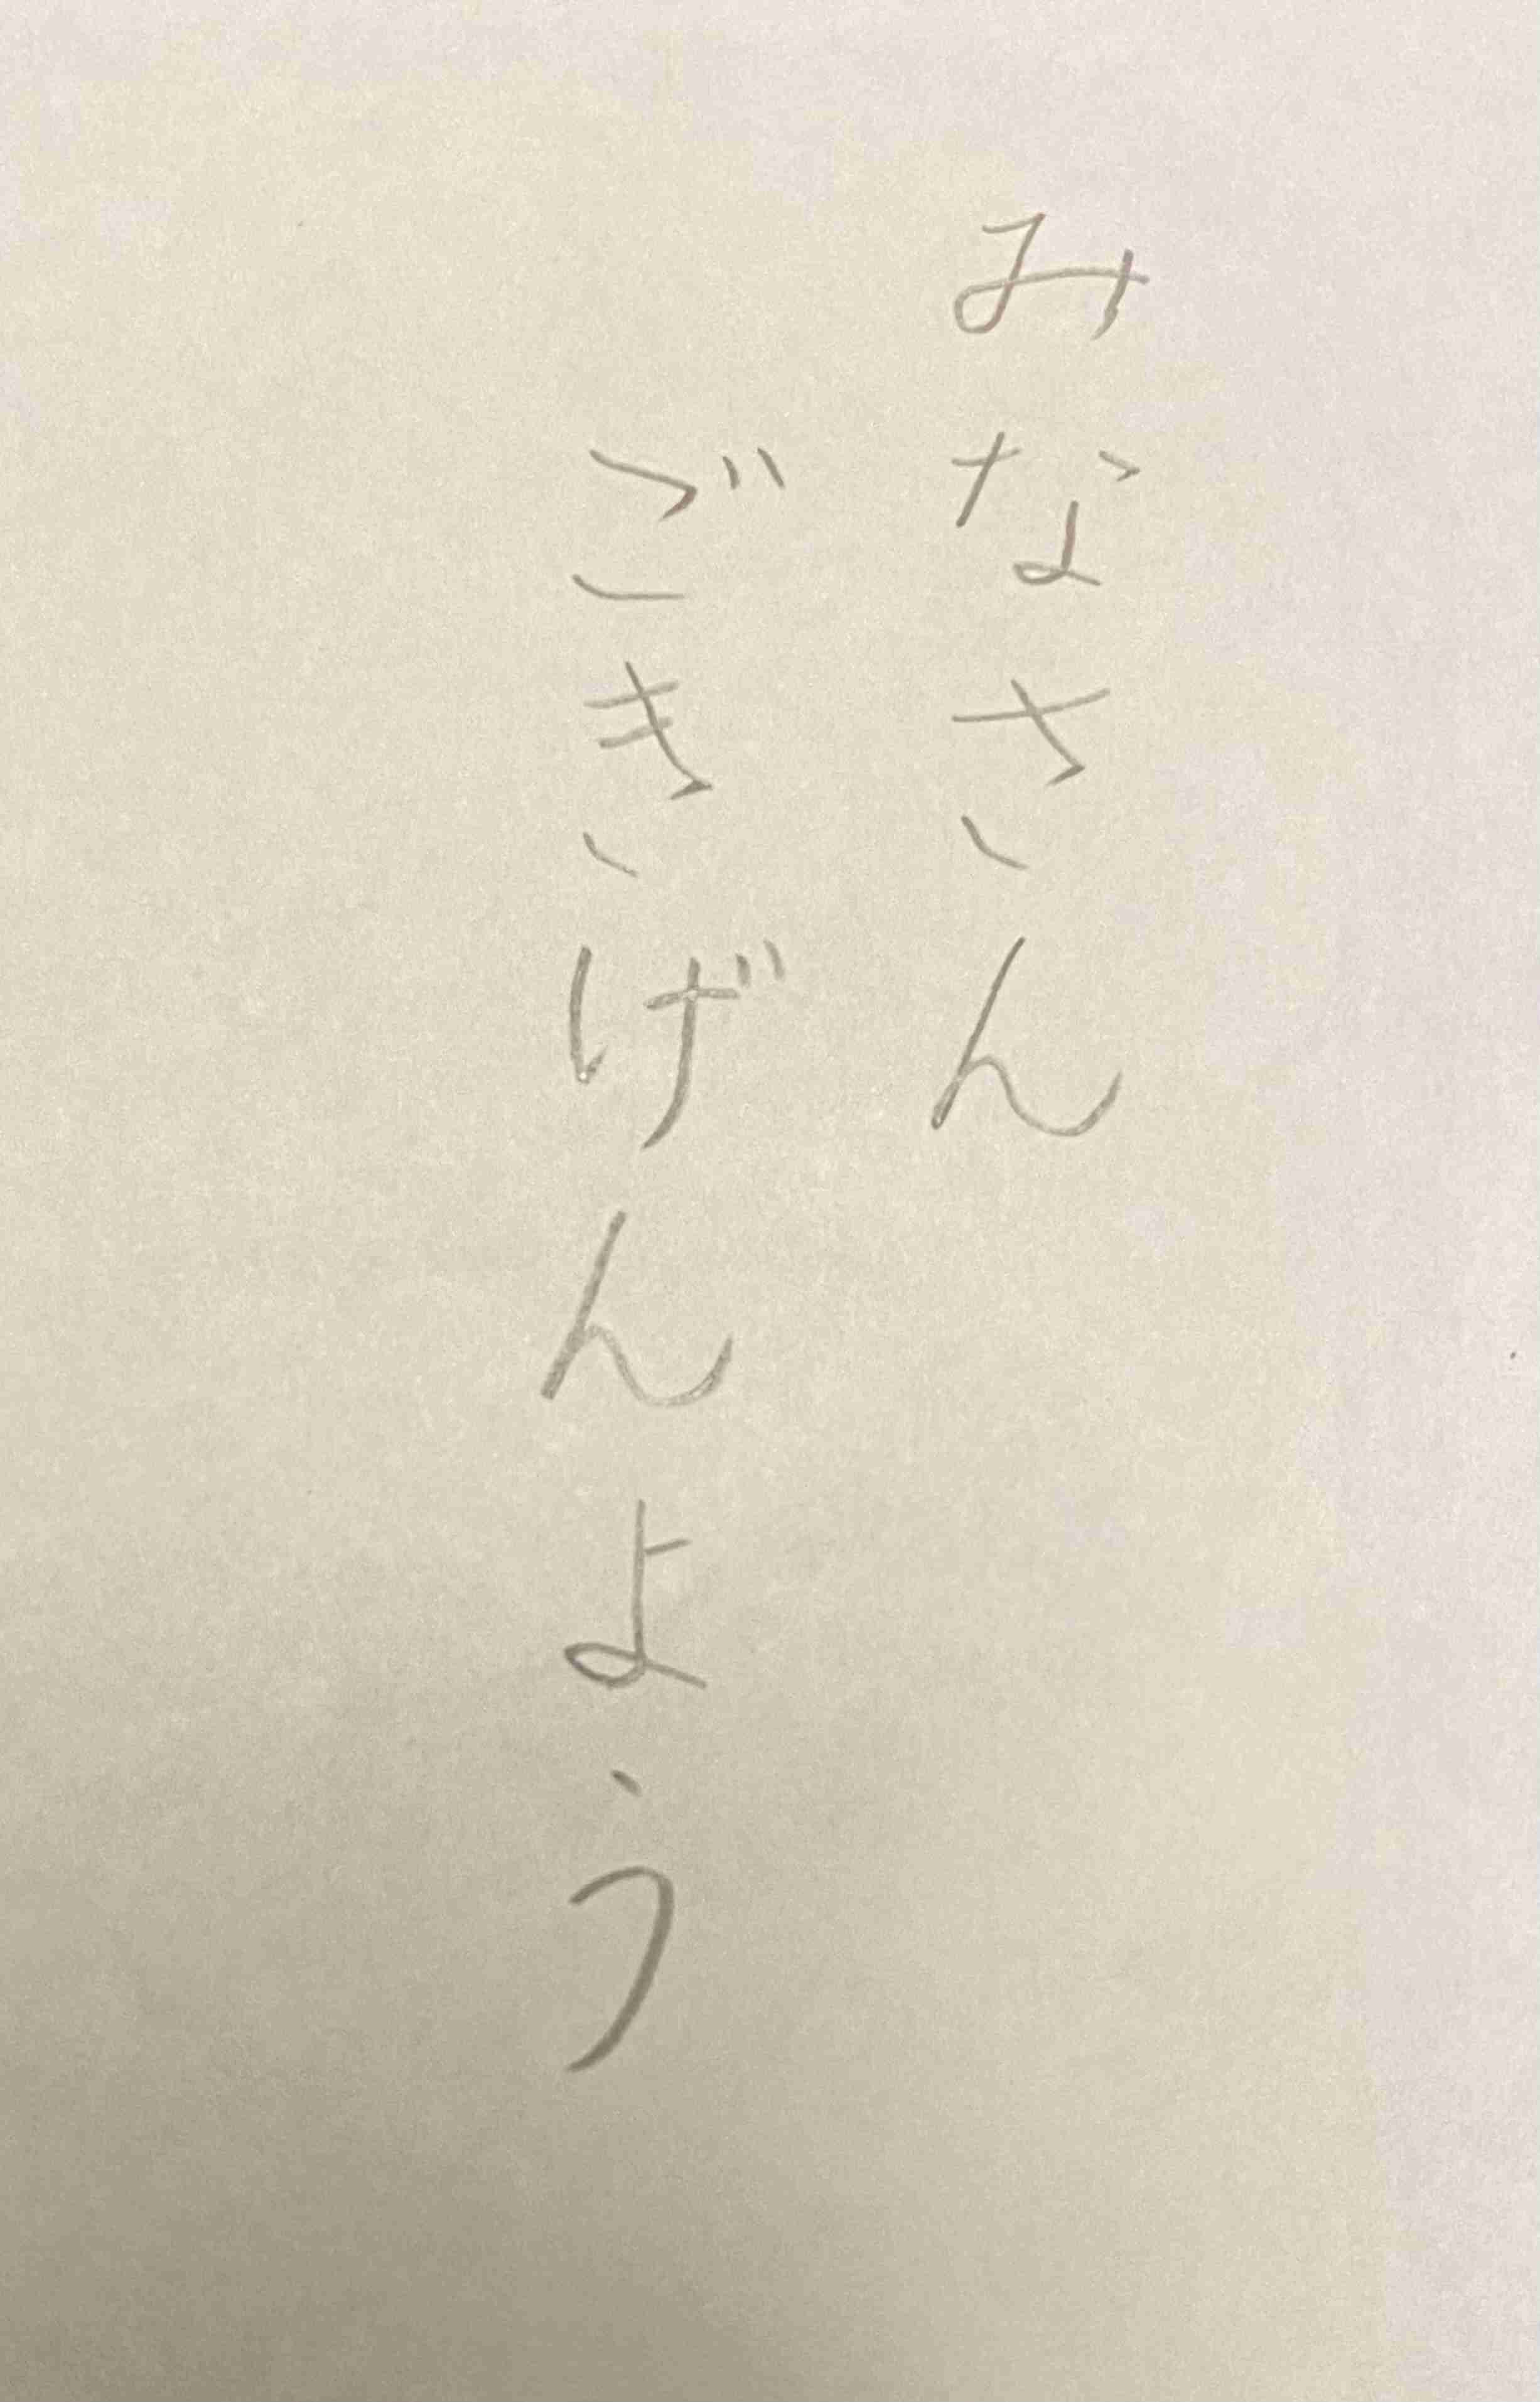 みなさん
ごきげんよう